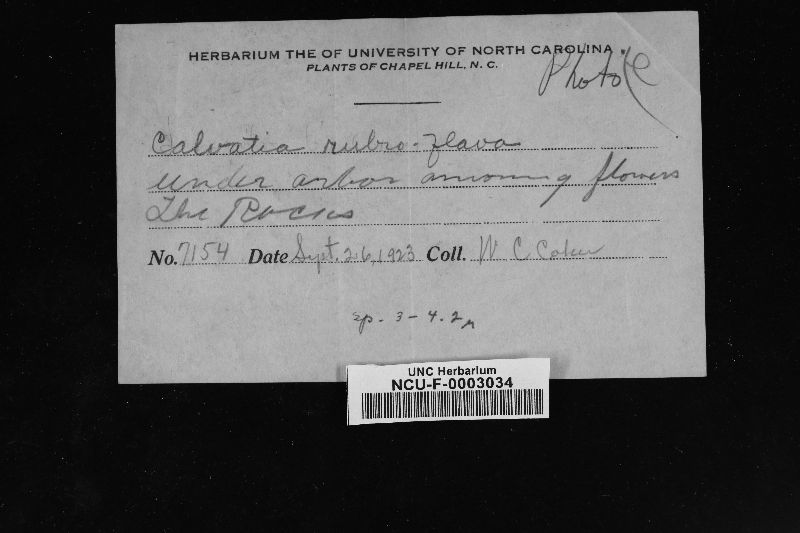 HERBARIUM THE OF UNIVERSITY OF NORTH CAROLINA
PLANTS OF CHAPEL HILL, N. C.
Photo
Calvatia rubro-flava
under arbor among flowers
The Rocks
No. 7154 Date Sept. 26, 1923 Coll. W C Coker
sp. 3-4.2µ
UNC Herbarium
NCU-F-0003034